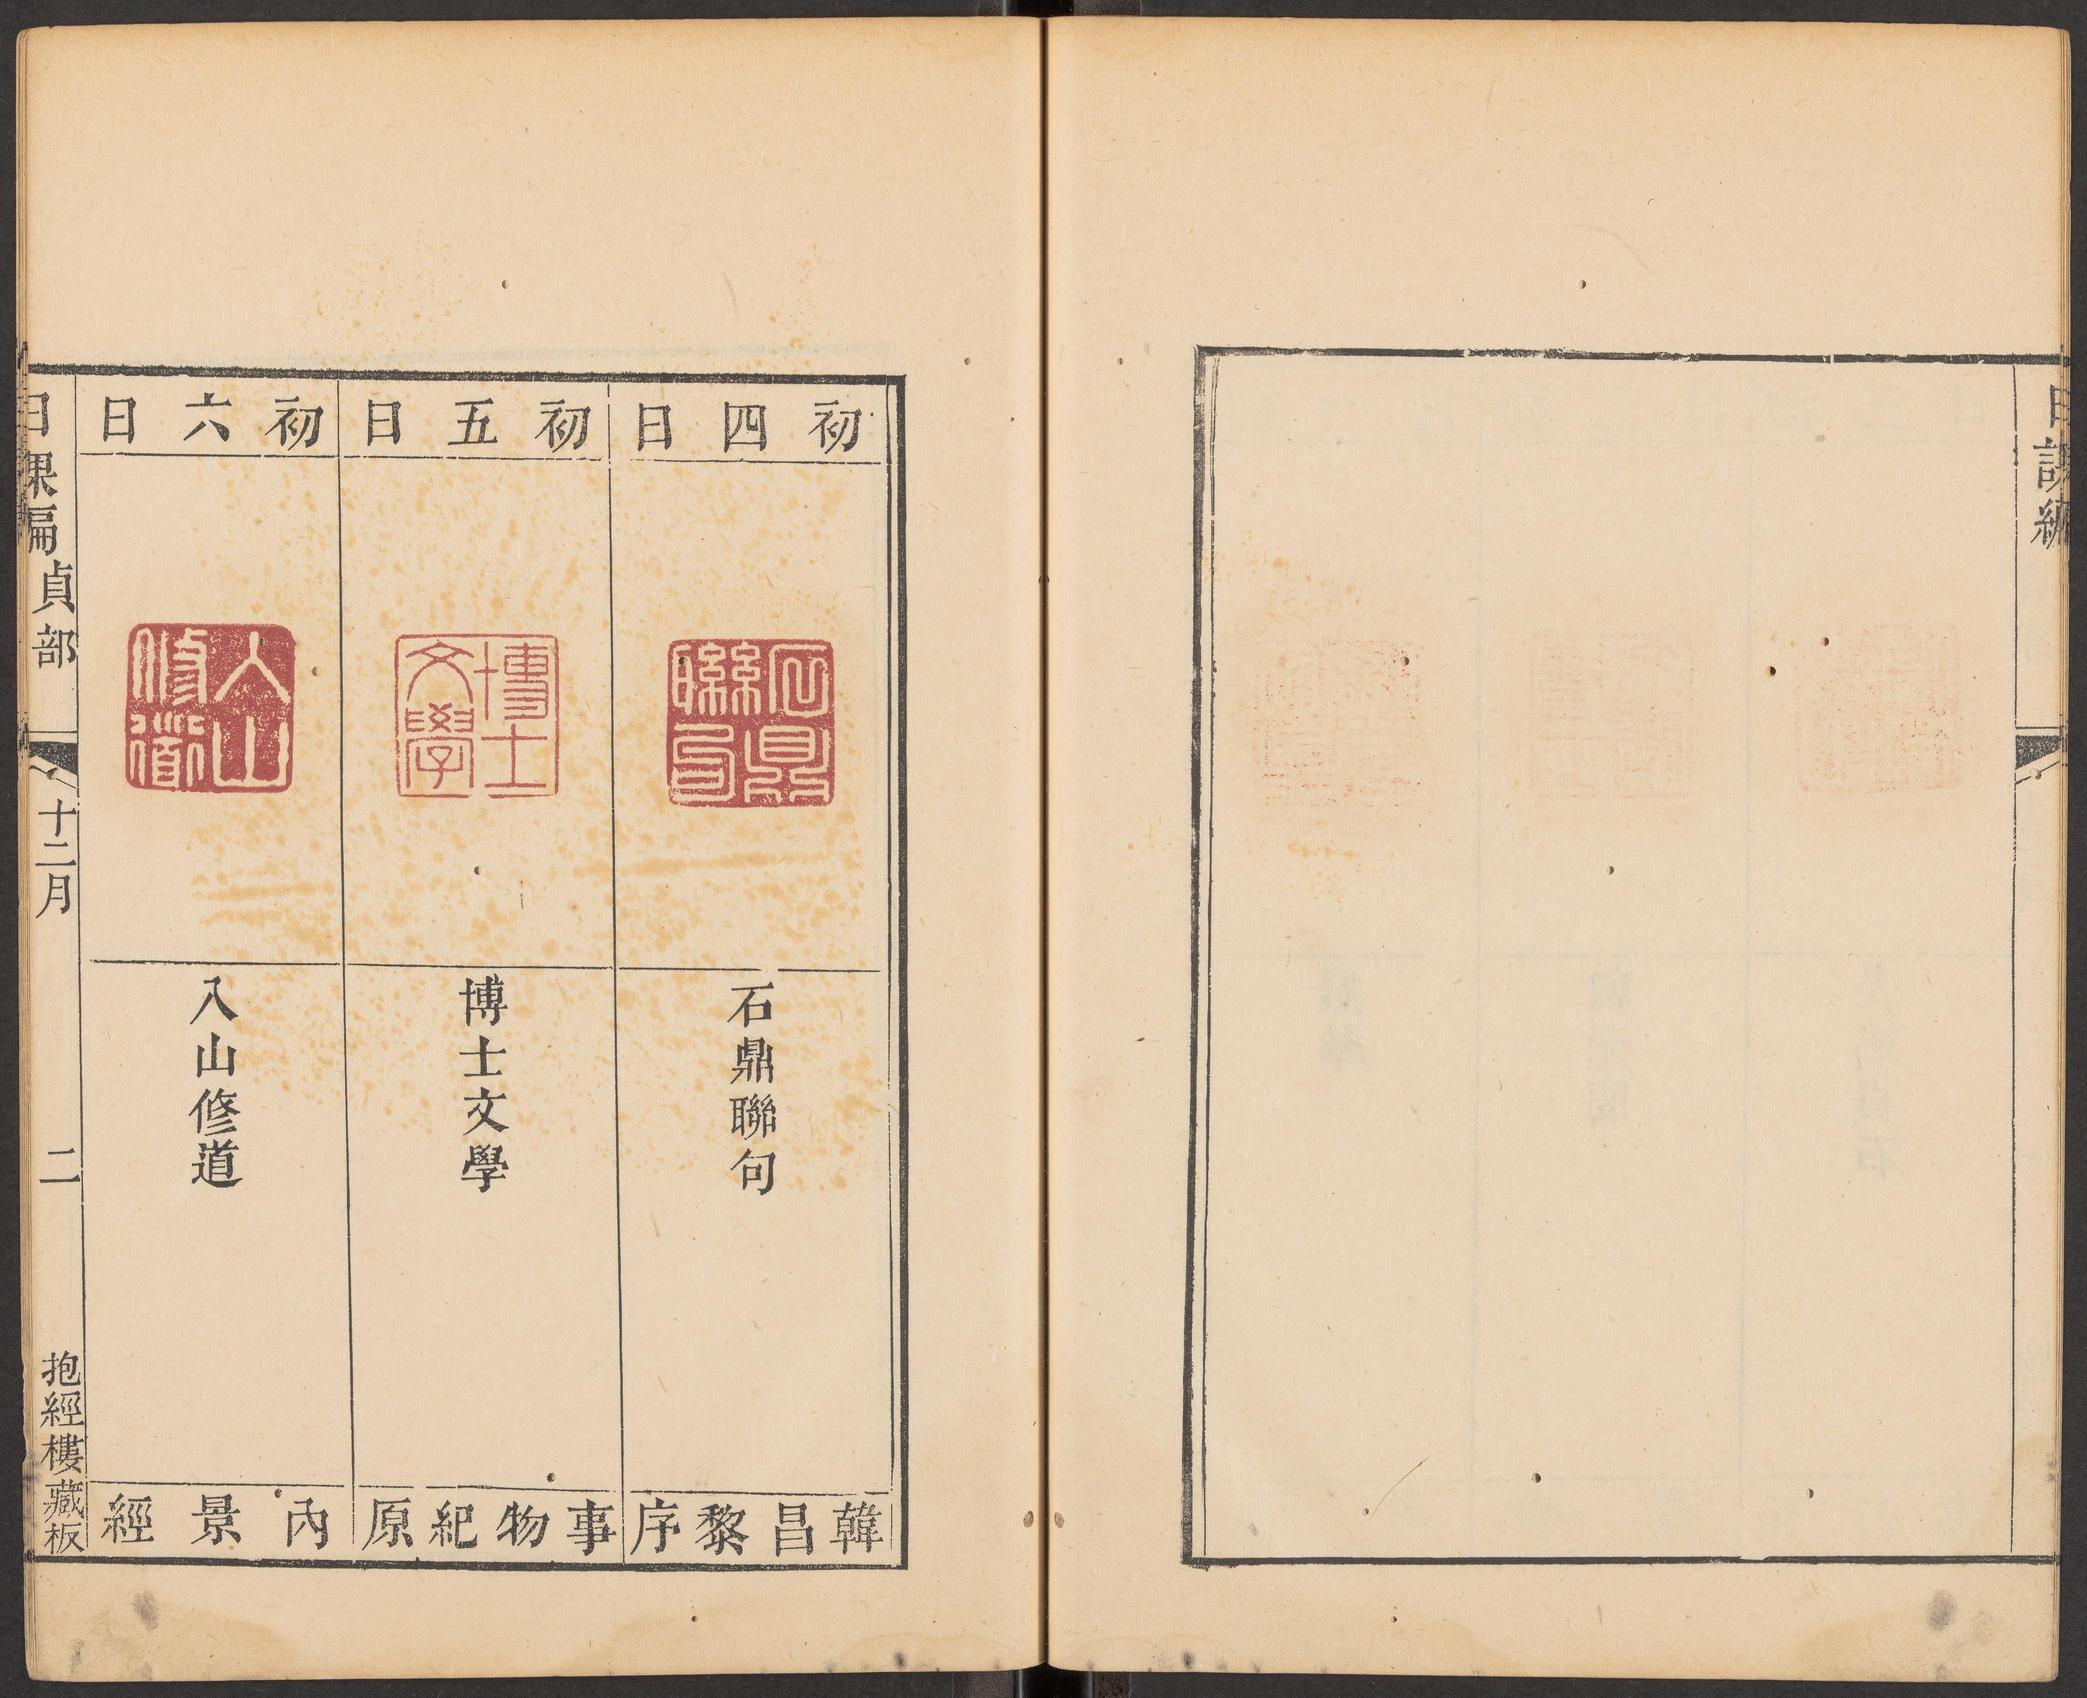 日課編
初四日
石鼎聯句
石鼎聯句
韓昌黎序
初五日
博士文學
博士文學
事物紀原
初六日
入山修道
入山修道
內景經
日課編貞部
十二月
二
抱經樓藏板